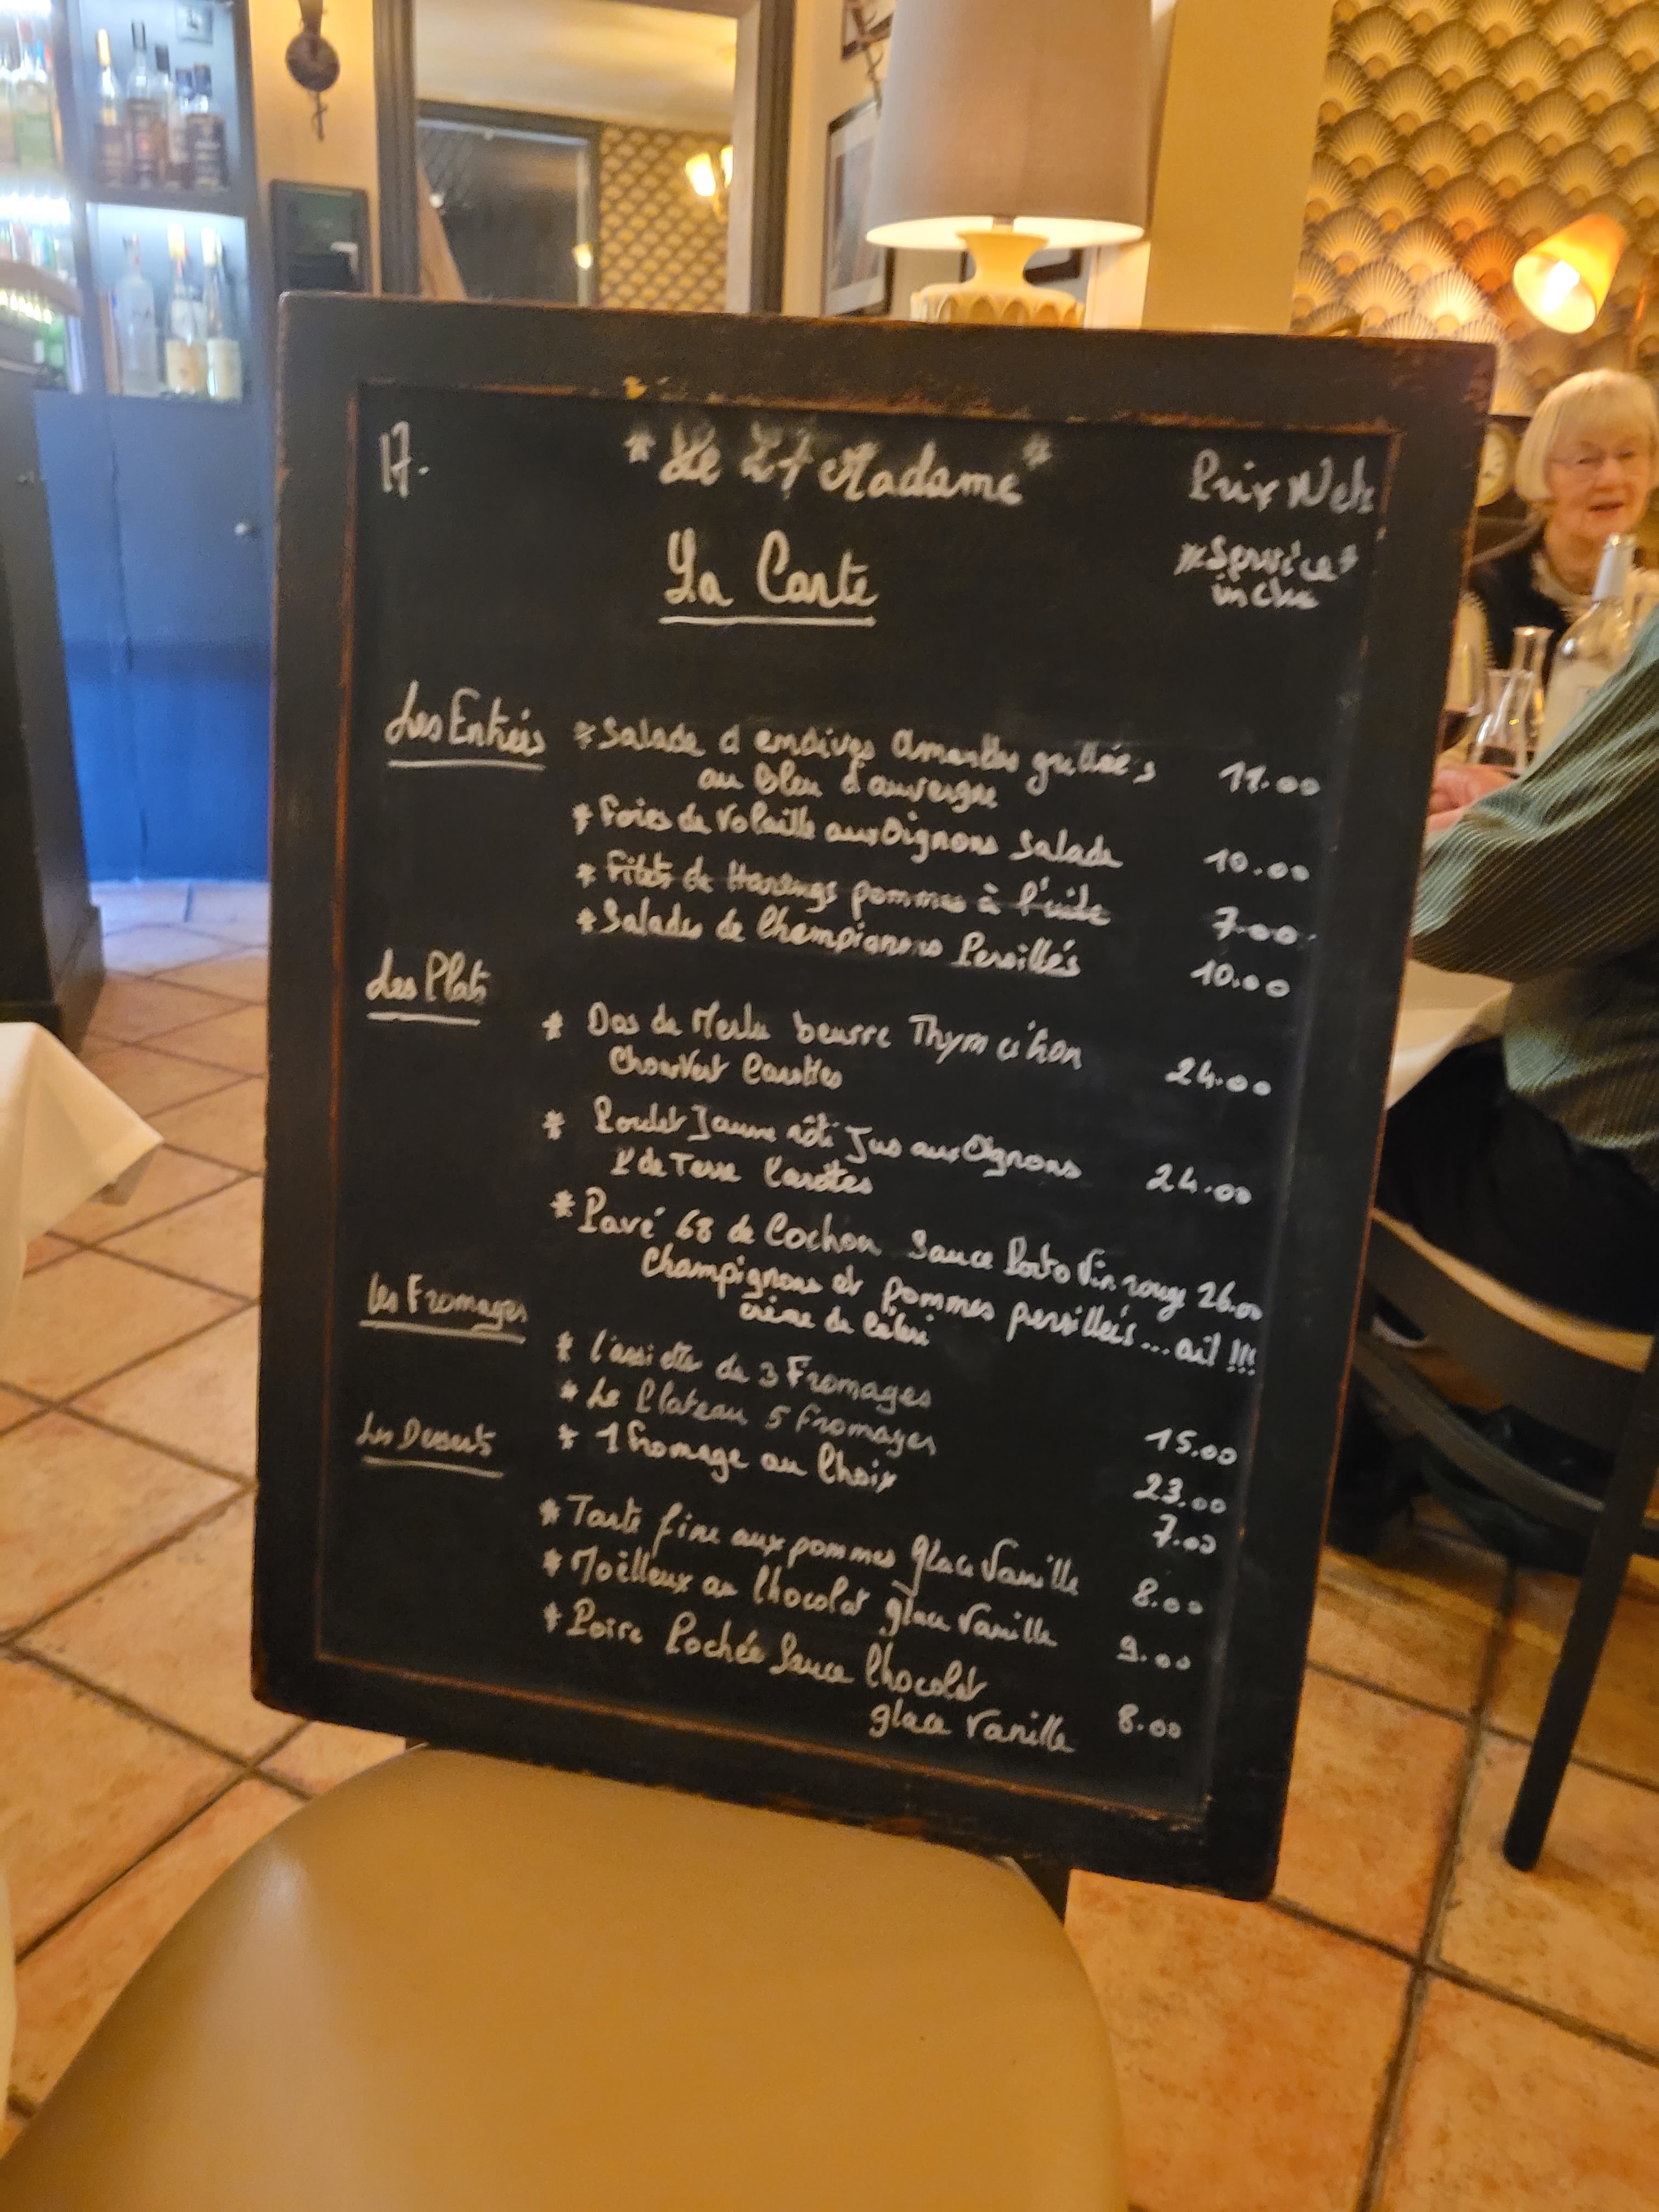 17.
*Le 27 Madame*
Prix Nets
*Service*
inclu
La Carte
Les Entrées
*Salade d'endives Amandes grillées 11.00
au Bleu d'auvergne
*Foies de Volaille aux Oignons Salade 10.00
*Filets de Harengs pommes à l'uile 7.00
*Salades de Champignons Persillés 10.00
Les Plats
* Dos de Merlu beurre Thym citron 24.00
Chou Vert Carottes
* Poulet Jaune rôti Jus aux Oignons 24.00
P de Terre Carottes
*Pavé 68 de Cochon Sauce Porto Vin rouge 26.00
Champignons et pommes persillées... ail !!!
crème de Céleri
Les Fromages
* l'assiette de 3 Fromages 15.00
* Le Plateau 5 Fromages 23.00
* 1 fromage au Choix 7.00
Les Desserts
*Tarte fine aux pommes glace Vanille 8.00
*Moëlleux au Chocolat glace Vanille 9.00
*Poire Pochée Sauce Chocolat
glace Vanille 8.00